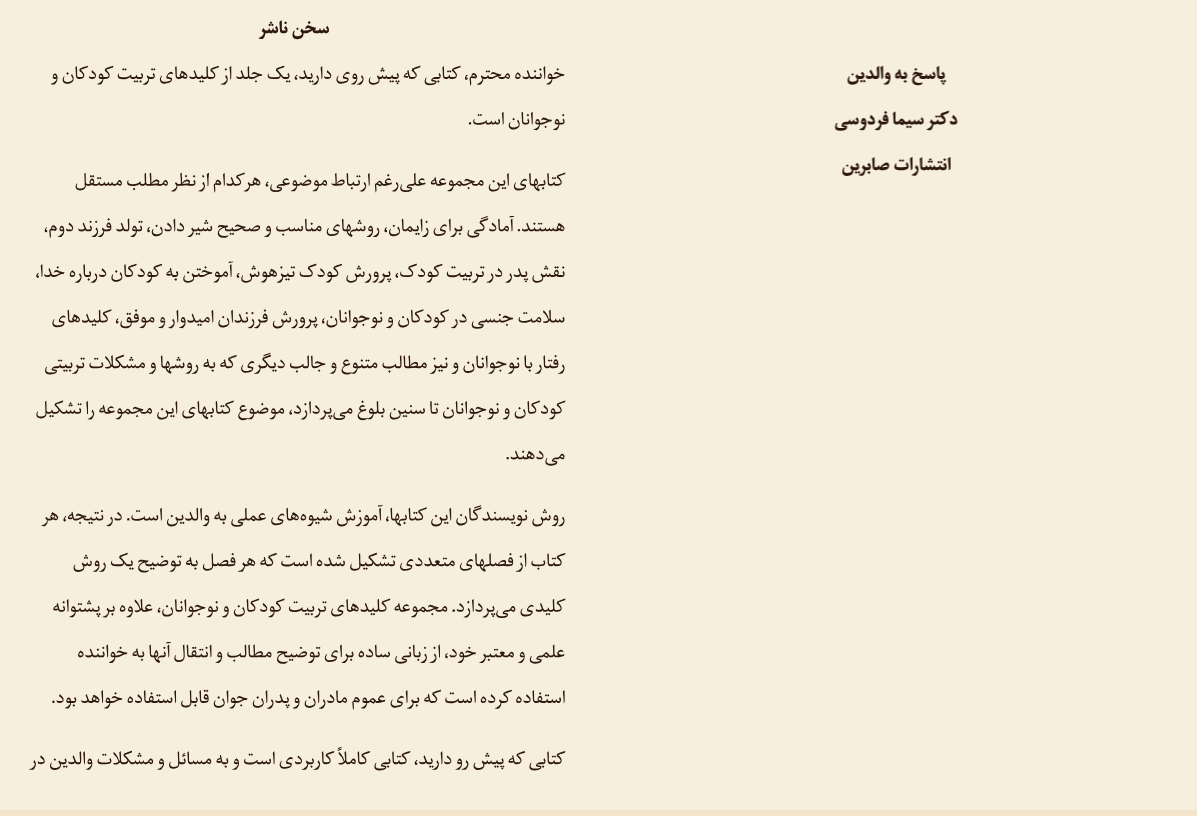 پاسخ به والدین
دکتر سیما فردوسی
انتشارات صابرین
سخن ناشر
خواننده محترم، کتابی که پیش روی دارید، یک جلد از کلیدهای تربیت کودکان و
نوجوانان است.
کتابهای این مجموعه علی‌رغم ارتباط موضوعی، هرکدام از نظر مطلب مستقل
هستند. آمادگی برای زایمان، روشهای مناسب و صحیح شیر دادن، تولد فرزند دوم،
نقش پدر در تربیت کودک، پرورش کودک تیزهوش، آموختن به کودکان درباره خدا،
سلامت جنسی در کودکان و نوجوانان، پرورش فرزندان امیدوار و موفق، کلیدهای
رفتار با نوجوانان و نیز مطالب متنوع و جالب دیگری که به روشها و مشکلات تربیتی
کودکان و نوجوانان تا سنین بلوغ می‌پردازد، موضوع کتابهای این مجموعه را تشکیل
می‌دهند.
روش نویسندگان این کتابها، آموزش شیوه‌های عملی به والدین است. در نتیجه، هر
کتاب از فصلهای متعددی تشکیل شده است که هر فصل به توضیح یک روش
کلیدی می‌پردازد. مجموعه کلیدهای تربیت کودکان و نوجوانان، علاوه بر پشتوانه
علمی و معتبر خود، از زبانی ساده برای توضیح مطالب و انتقال آنها به خواننده
استفاده کرده است که برای عموم مادران و پدران جوان قابل استفاده خواهد بود.
کتابی که پیش رو دارید، کتابی کاملاً کاربردی است و به مسائل و مشکلات والدین در